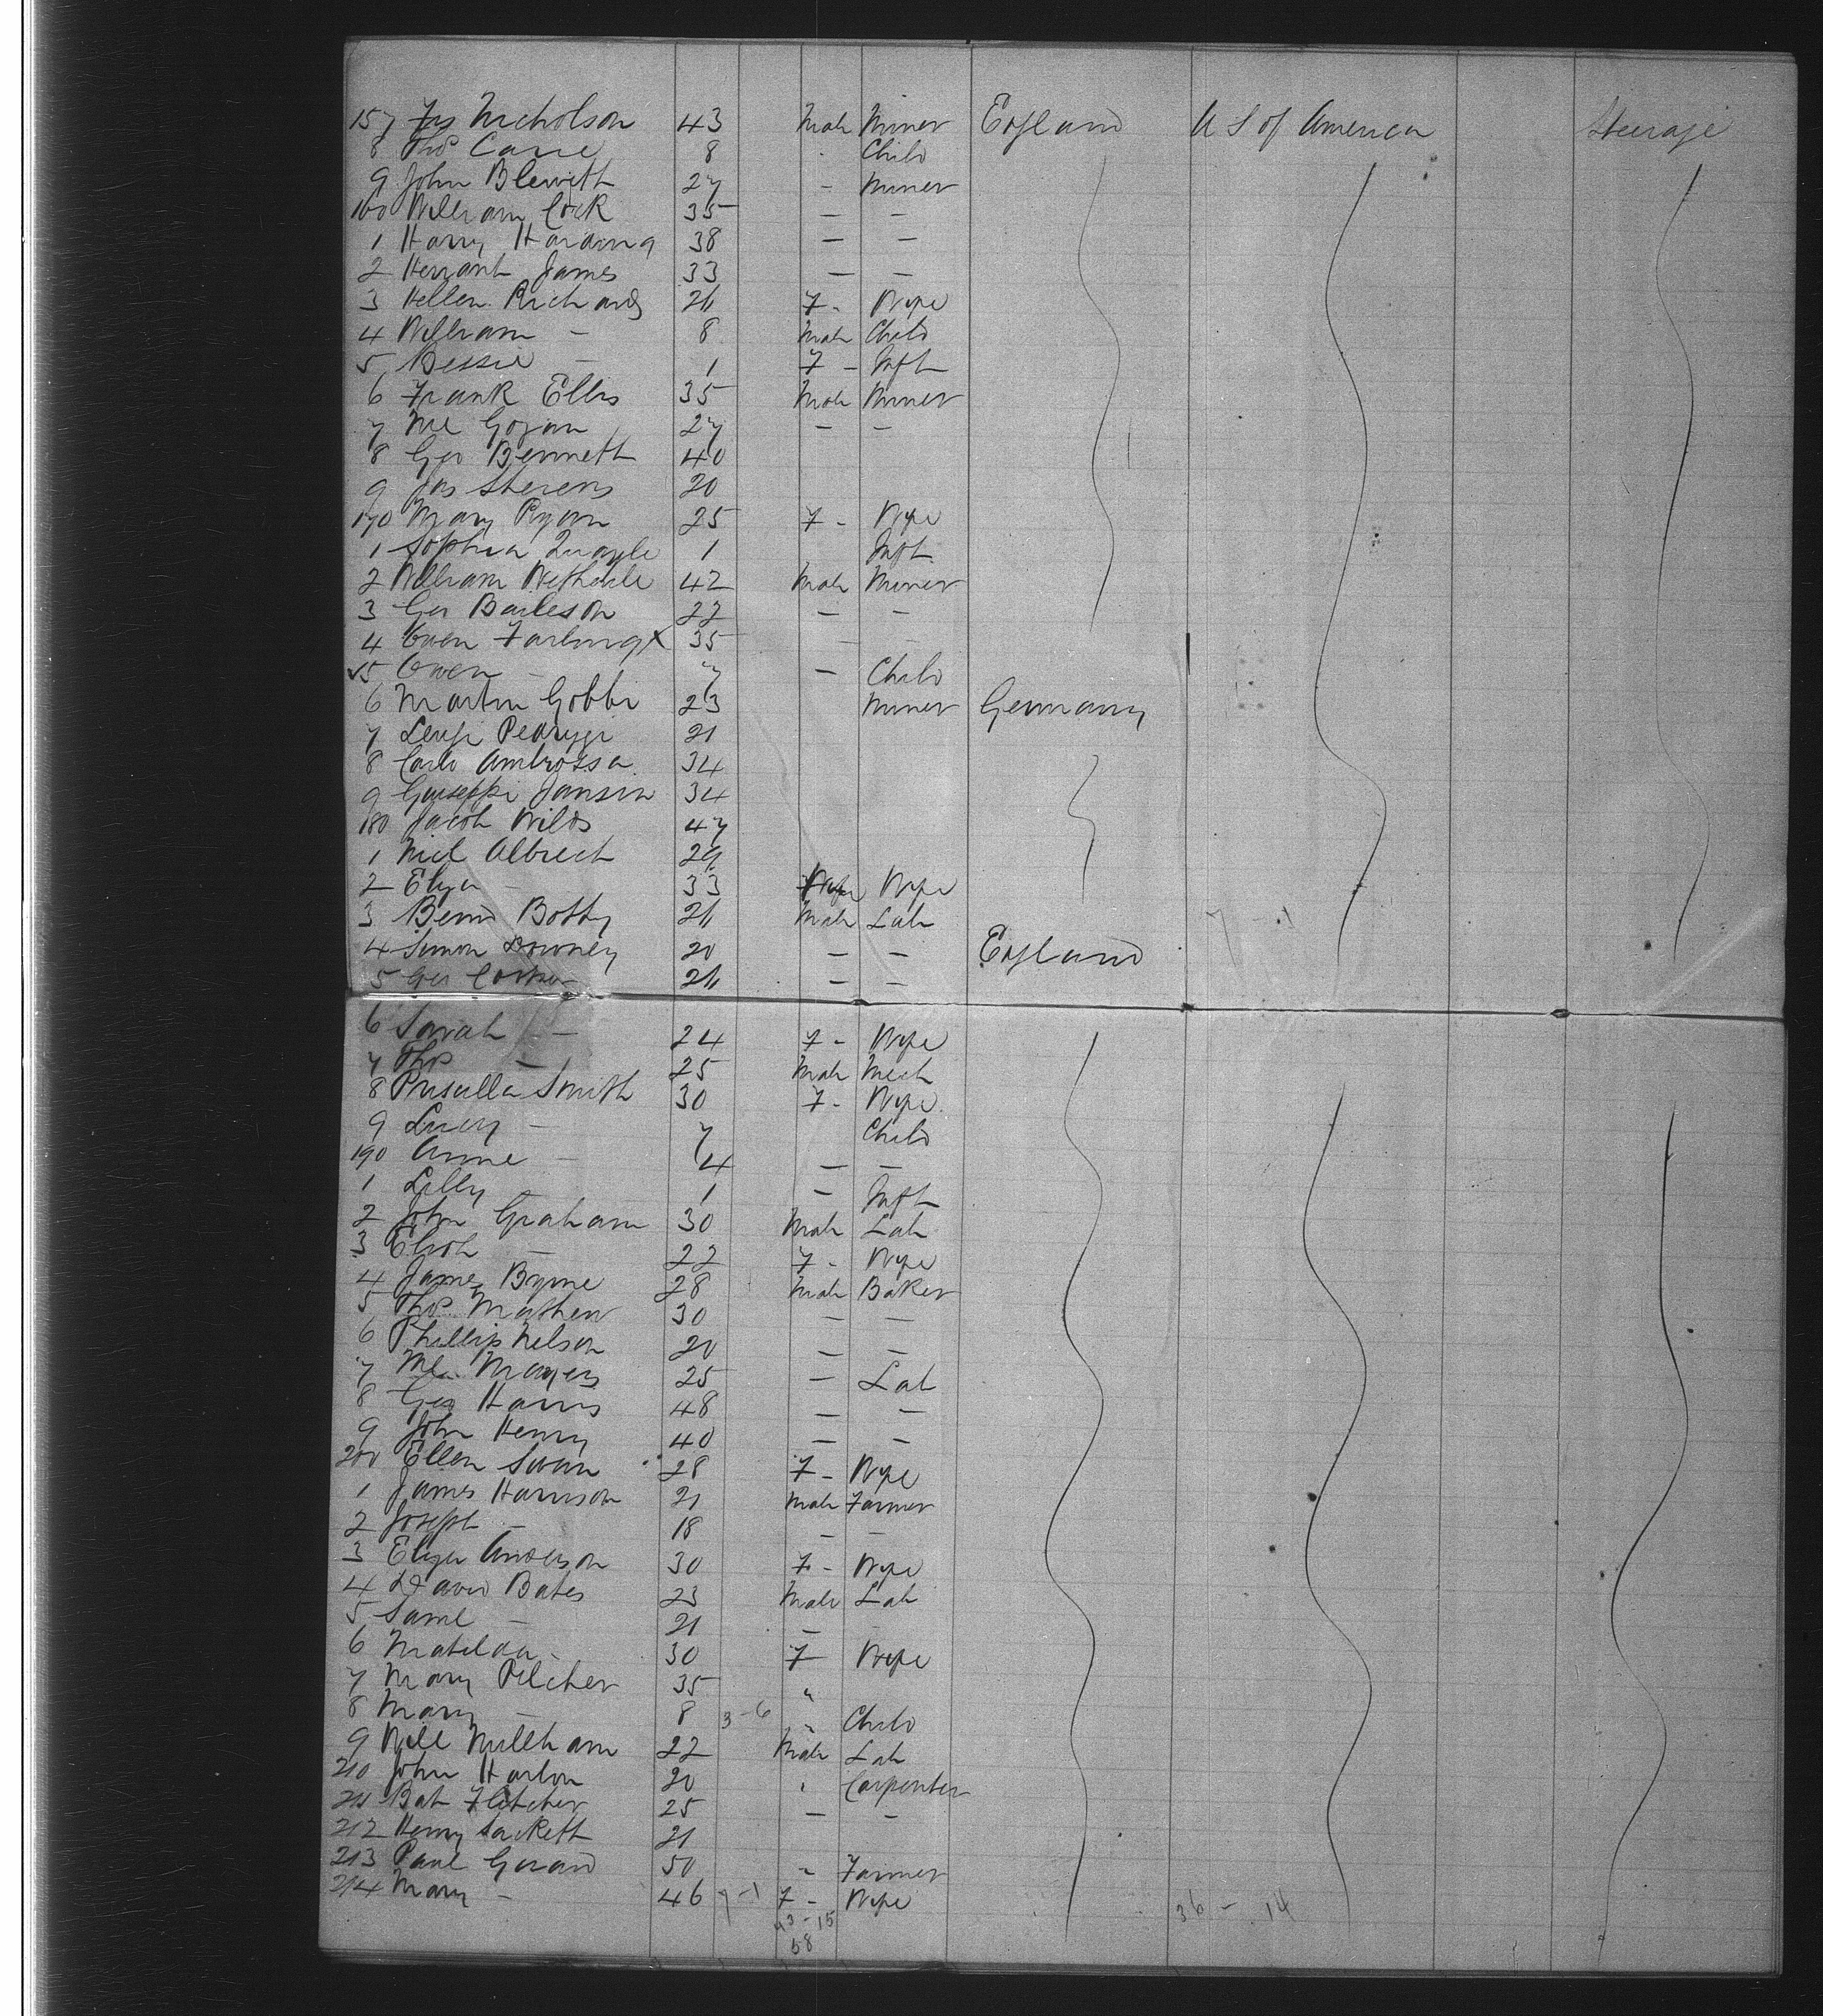 157 Jas Nicholson 43 Male Miner England U S of America Steerage
8 Thos Carne 8 - Child
9 John Blewett 27 - Miner
160 William Cock 35 - -
1 Harry Harding 38 - -
2 James 33 - -
3 Hellen Richards 26 F - Wife
4 William - 8 Male Child
5 Bessie - 1 F - Inft
6 Frank Ellis 35 Male Miner
7 27 - -
8 Geo Bennett 40
9 Jas Stevens 20
170 Mary Ryan 25 F - Wife
1 Sophia Quayle 1 Inft
2 William 42 Male Miner
3 Geo 22 - -
4 Owen X 35 - -
✓5 Owen - 7 - Child
6 Martin Gobbi 23 Miner Germany
7 21
8 Carlo Ambrossa 34
9 Guiseppi 34
180 Jacob Wilds 47
1 Albrech 29
2 Eliza - 33 Wife
3 Botty 26 Male Lab
4 Simon Downey 20 - - England
5 Geo 26 - -
6 Sarah - 24 F - Wife
7 Thos - 25 Male Mech
8 Prisulla Smith 30 F - Wife
9 Lucy - 7 Child
190 Anne - 4 - -
1 Lilly - 1 - Inft
2 John Graham 30 Male Lab
3 Elizth - 22 F - Wife
4 James Byrne 28 Male Baker
5 Thos Mathew 30 - -
6 Phillip Nelson 20 - -
7 Mayers 25 - Lab
8 Geo Harris 48 - -
9 John Henry 40 - -
200 Ellen Swan 28 F - Wife
1 James Harrison 21 Male Farmer
2 Joseph - 18 - -
3 Eliza Anderson 30 F - Wife
4 David Bates 23 Male Lab
5 Saml - 21 - -
6 Matilda - 30 F Wife
7 Mary Pilcher 35 "
8 Mary - 8 3-6 " Child
9 Will Millham 22 Male Lab
210 John Harton 20 " Carpenter
211 Bat Fletcher 25 - -
212 Henry Sackett 21
213 Paul 50 " Farmer
214 Mary - 46 7-1 F - Wife 36 - 14
43-15
58